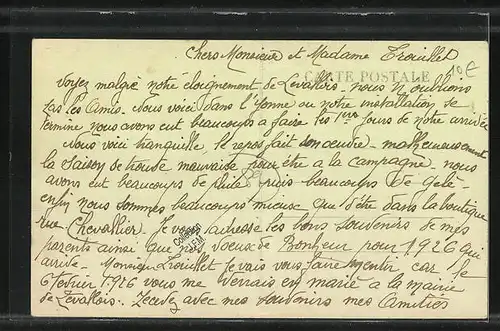 Chers Monsieur et Madame Trouillet
CARTE POSTALE
10 €
Voyez malgré notre éloignement de Levallois nous n'oublions
pas les Amis. Nous voici dans l'Yonne ou notre installation se
termine nous avons eut beaucoups a faire les 1ers jours de notre arrivée
Nous voici tranquille, le repos fait son oeuvre - malheureusement
la saison de trouve mauvaise pour être a la campagne. nous
avons eut beaucoups de pluie puis beaucoups de gelé -
enfin nous sommes beaucoups mieux que d'être dans la boutique
rue Chevallier. Je vous adresse les bons souvenirs de mes
parents ainsi que mes voeux de Bonheur pour 1926 qui
arrive - Monsieur Trouillet je vais vous faire mentir car le
6 fevrier 1926 vous me verrais en marié a la mairie
de Levallois. Recevez avec mes souvenirs mes Amitiés